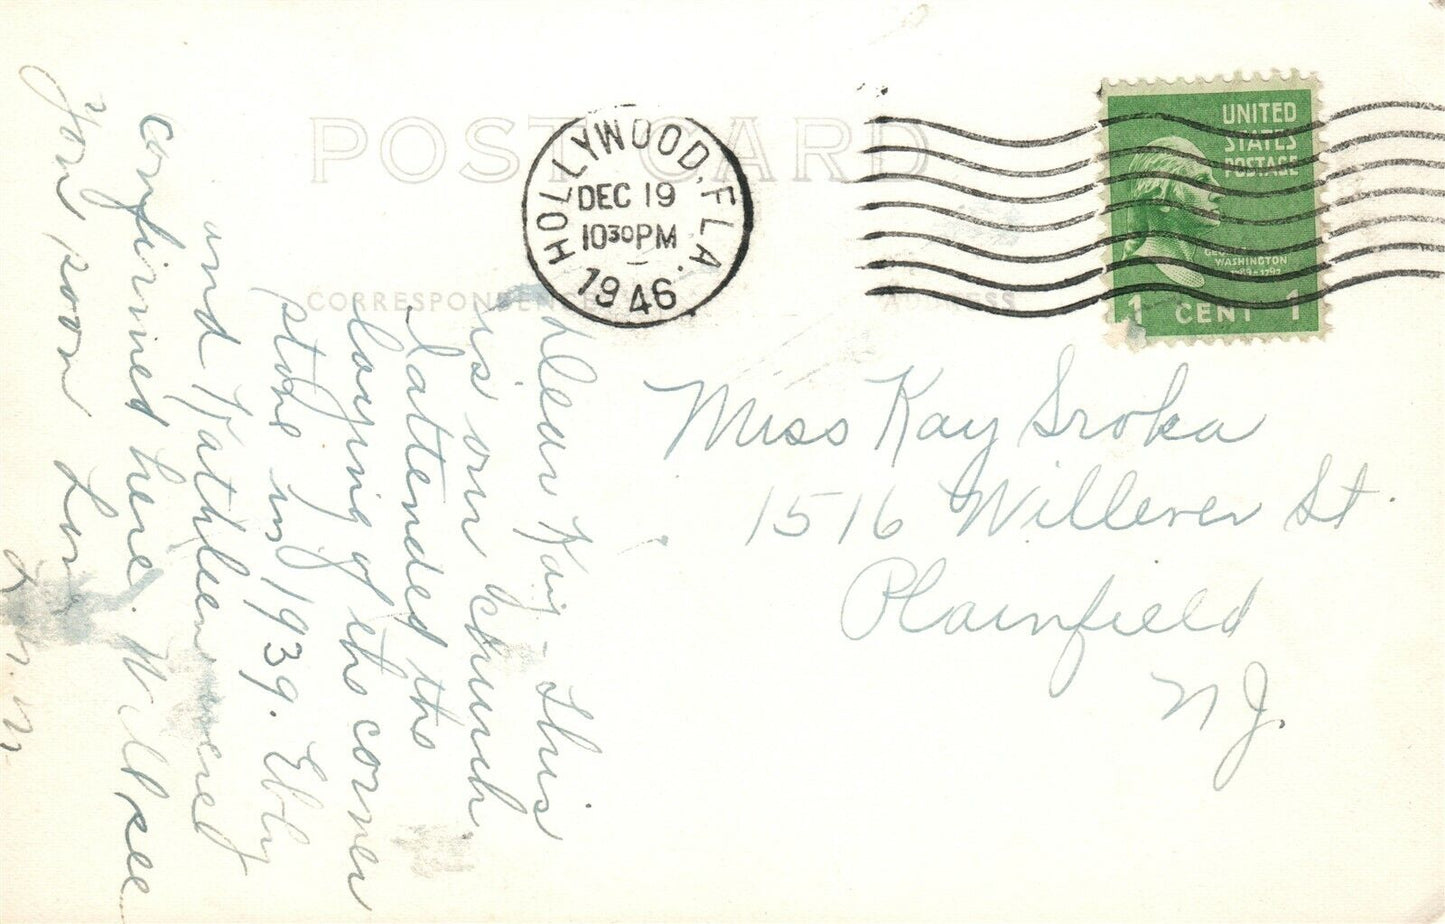 POST CARD
HOLLYWOOD, FLA.
DEC 19
10 30 PM
1946
UNITED
STATES
POSTAGE
WASHINGTON
1789-1797
1 CENT 1
CORRESPONDENCE
ADDRESS
Dear Kay - This
is our Church
I attended the
laying of the corner
stone in 1939.
and Kathleen were
confirmed here. Will see
You soon Love
Miss Kay Sroka
1516 Willever St.
Plainfield
N.J.